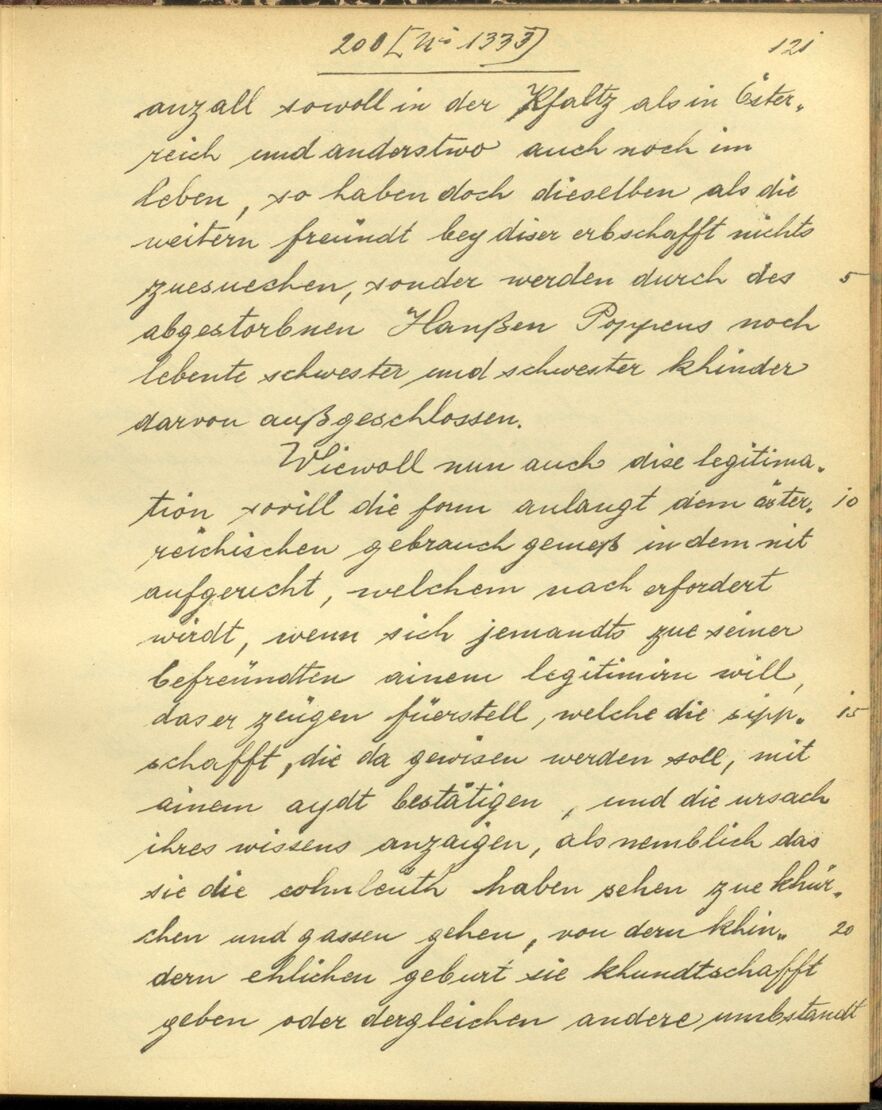 208 [N° 1333] 121
anzall sowoll in der Pfaltz als in Öster„
reich und anderstwo auch noch im
leben, so haben doch dieselben als die
weitern freündt bey diser erbschafft nichts
zuesuechen, sonder werden durch des 5
abgestorbnen Hanßen Poppens noch
lebente schwester und schwester khinder
darvon außgeschlossen.
Wiewoll nun auch dise legitima„
tion sovill die form anlangt dem öster„ 10
reichischen gebrauch gemeß in dem nit
aufgericht, welchem nach erfordert
wirdt, wenn sich jemandts zue seiner
befreündten ainem legitimirn will,
das er zeügen füerstell, welche die sipp„ 15
schafft, die da gewisen werden soll, mit
ainem aydt bestätigen, und die ursach
ihres wissens anzaigen, als nemblich das
sie die cohnleüth haben sehen zue khür„
chen und gassen gehen, von dern khin„ 20
dern ehlichen geburt sie khundtschafft
geben oder dergleichen andere umbstandt